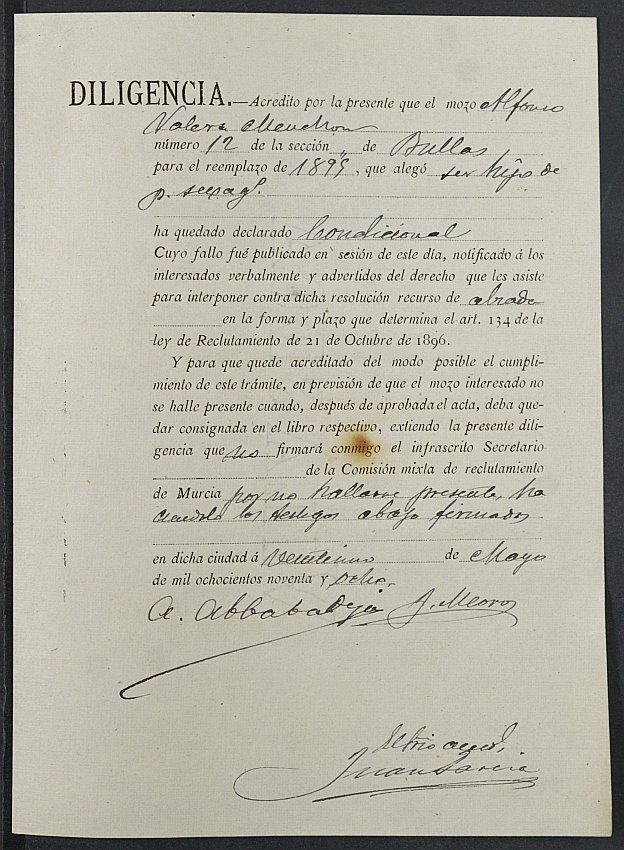 DILIGENCIA.—Acredito por la presente que el mozo Alfonso
Valera
número 12 de la sección „ de Bullas
para el reemplazo de 1895, que alegó ser hijo de
p. sexagl.
ha quedado declarado Condicional
Cuyo fallo fué publicado en sesión de este día, notificado á los
interesados verbalmente y advertidos del derecho que les asiste
para interponer contra dicha resolución recurso de alzada
en la forma y plazo que determina el art. 134 de la
ley de Reclutamiento de 21 de Octubre de 1896.
Y para que quede acreditado del modo posible el cumpli-
miento de este trámite, en previsión de que el mozo interesado no
se halle presente cuando, después de aprobada el acta, deba que-
dar consignada en el libro respectivo, extiendo la presente dili-
gencia que no firmará conmigo el infrascrito Secretario
de la Comisión mixta de reclutamiento
de Murcia por no hallarse presente, ha
ciendolo los testigos abajo firmados
en dicha ciudad á veintiuno de Mayo
de mil ochocientos noventa y ocho.
A. Abbabadeja J. Meoro
El Srio accl.
Juan Garcia